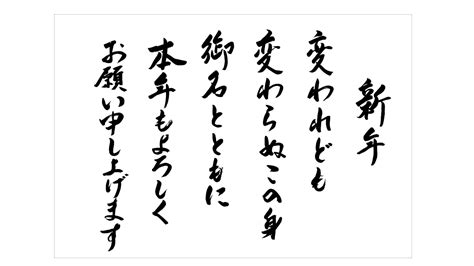 新年
変われども
変わらぬこの身
御名とともに
本年もよろしく
お願い申し上げます